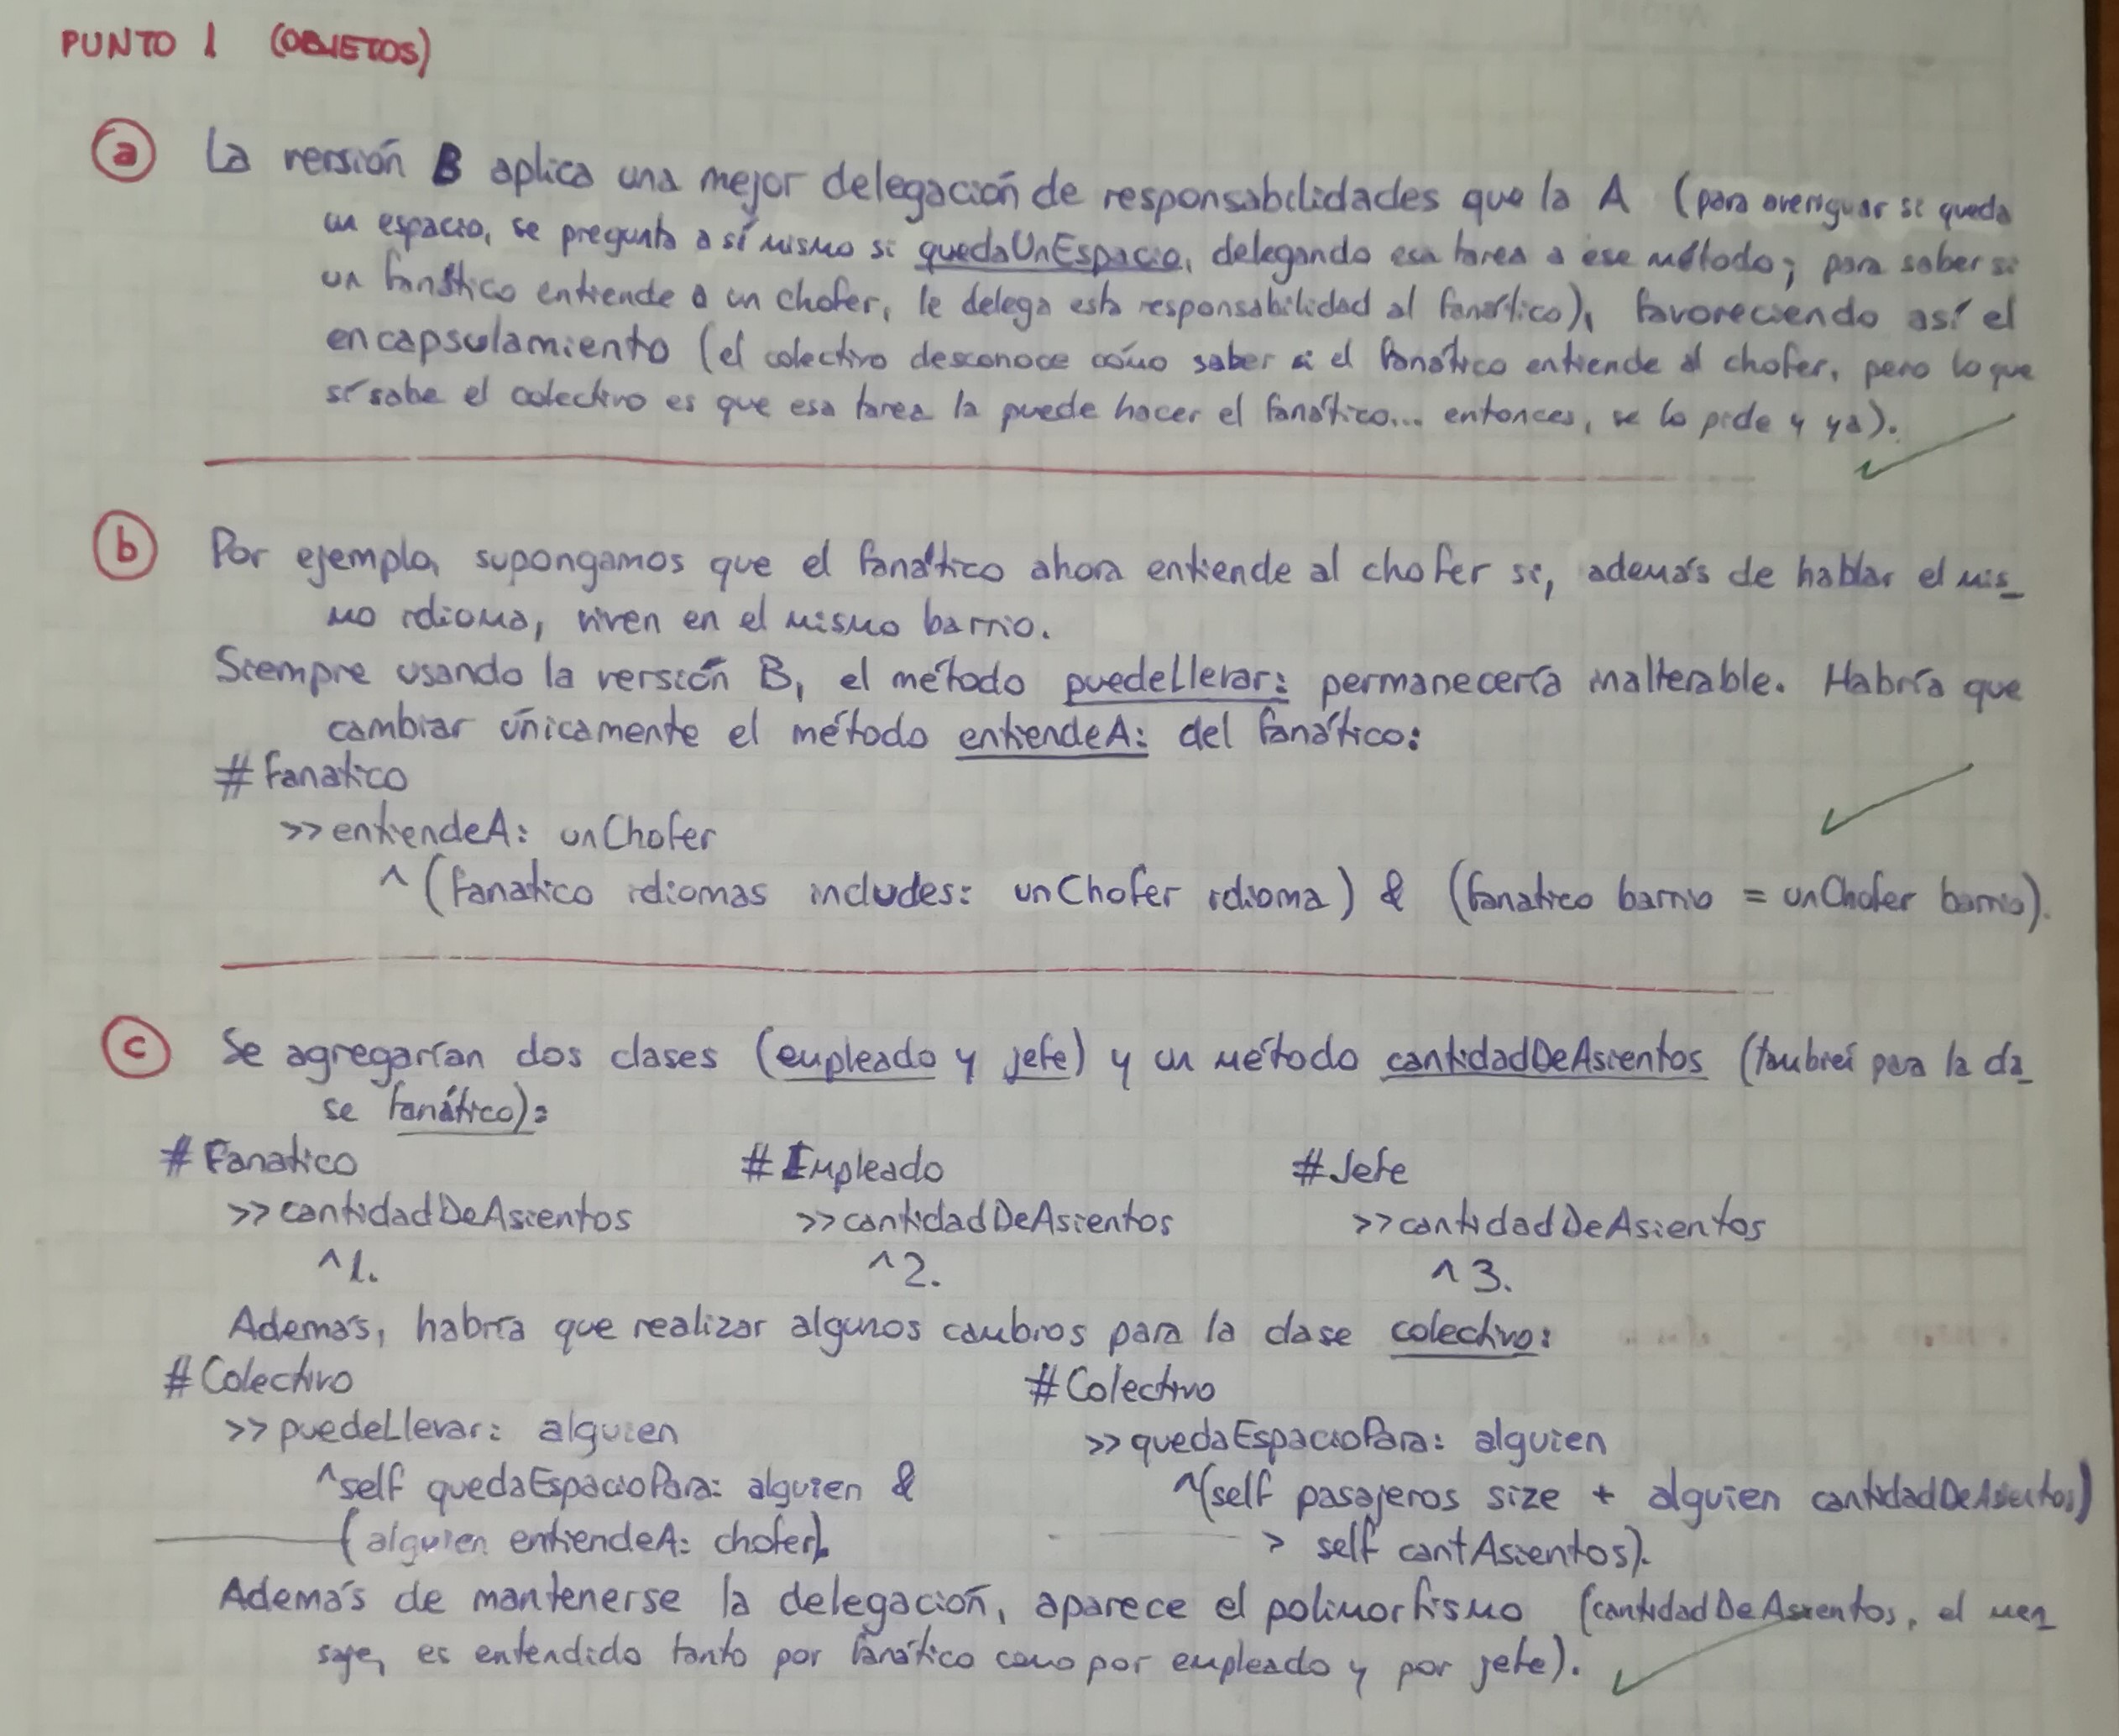 PUNTO 1 (OBJETOS)
a La versión B aplica una mejor delegación de responsabilidades que la A (para averiguar si queda
un espacio, se pregunta a sí mismo si quedaUnEspacio, delegando esa tarea a ese método; para saber si
un fanático entiende a un chofer, le delega esta responsabilidad al fanático), favoreciendo así el
encapsulamiento (el colectivo desconoce cómo saber si el fanático entiende al chofer, pero lo que
sí sabe el colectivo es que esa tarea la puede hacer el fanático... entonces, se lo pide y ya).
b Por ejemplo, supongamos que el fanático ahora entiende al chofer si, además de hablar el mis_
mo idioma, viven en el mismo barrio.
Siempre usando la versión B, el método puedeLlevar: permanecería inalterable. Habría que
cambiar únicamente el método entiendeA: del fanático:
# Fanatico
>> entiendeA: unChofer
^ (fanatico idiomas includes: unChofer idioma) & (fanatico barrio = unChofer barrio).
c Se agregarían dos clases (empleado y jefe) y un método cantidadDeAsientos (también para la cla_
se fanático):
# Fanatico # Empleado # Jefe
>> cantidadDeAsientos >> cantidadDeAsientos >> cantidadDeAsientos
^1. ^2. ^3.
Además, habría que realizar algunos cambios para la clase colectivo:
# Colectivo # Colectivo
>> puedeLlevar: alguien >> quedaEspacioPara: alguien
^self quedaEspacioPara: alguien & ^(self pasajeros size + alguien cantidadDeAsientos)
(alguien entiendeA: chofer). > self cantAsientos).
Además de mantenerse la delegación, aparece el polimorfismo (cantidadDeAsientos, el men_
saje, es entendido tanto por fanático como por empleado y por jefe).